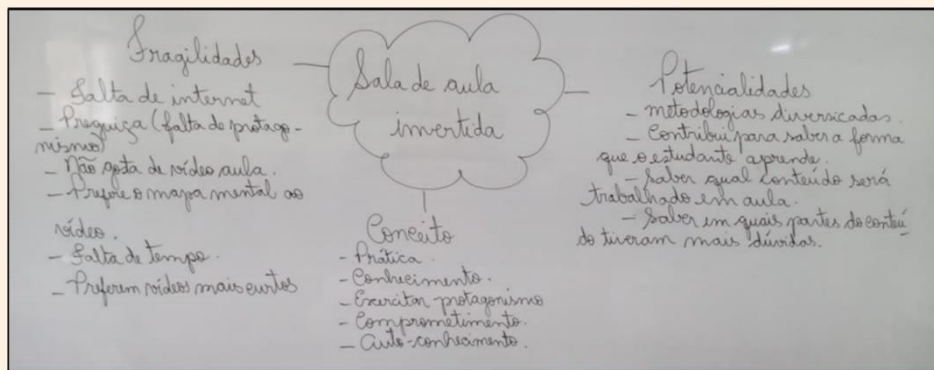 Sala de aula
invertida
Fragilidades
- Falta de internet
- Preguiça (falta de protago-
nismo)
- Não gosta de vídeo aula.
- Prefere o mapa mental ao
vídeo.
- Falta de tempo.
- Preferem vídeos mais curtos
Conceito
- Prática.
- Conhecimento.
- Exercitar protagonismo
- Comprometimento.
- Auto-conhecimento.
Potencialidades
- metodologias diversicadas.
- Contribui para saber a forma
que o estudante aprende.
- Saber qual conteúdo será
trabalhado em aula.
- Saber em quais partes do conteú
do tiveram mais dúvidas.